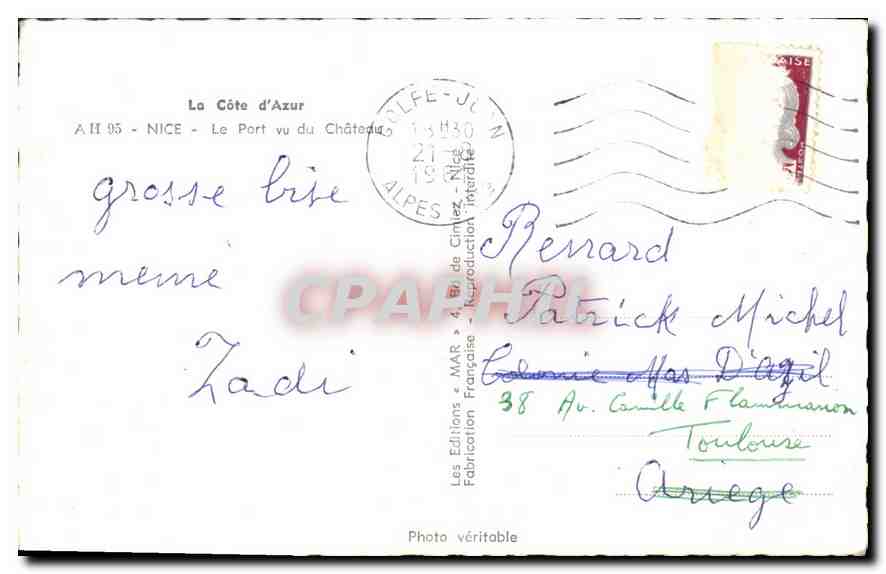 La Côte d'Azur
AH 95 - NICE - Le Port vu du Château
GOLFE-JUAN
18H30
21-8
19
ALPES
AISE
grosse bise
mémé
Zadi
Les Editions « MAR » 4, Bd de Cimiez - Nice
Fabrication Française - Reproduction interdite
CPAPHIL
Renard
Patrick Michel
Colonie Mas D'azil
38 Av. Camille Flammarion
Toulouse
Ariege
Photo véritable